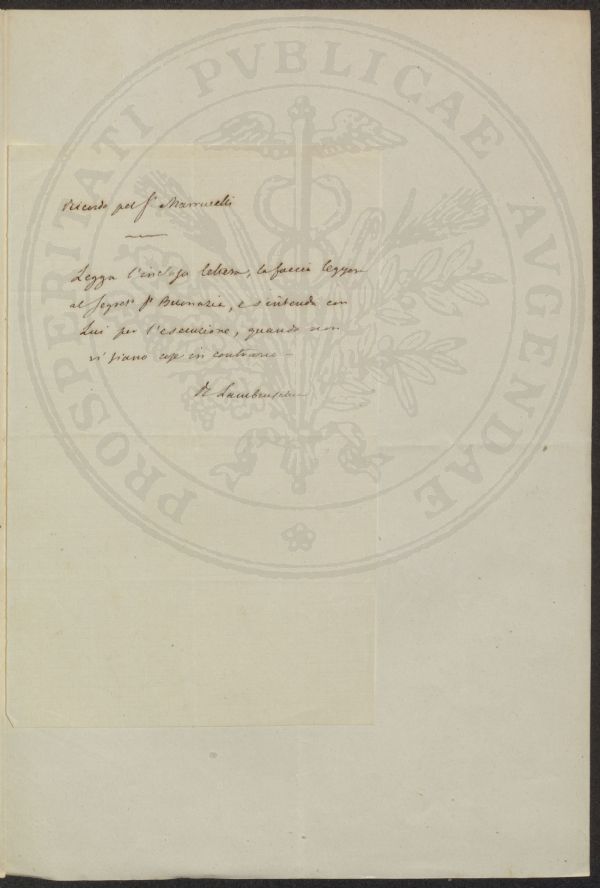 PROSPERITATI PVBLICAE AVGENDAE
Ricordo pel Sr. Marrucelli
Legga l'inclusa lettera, la faccia leggere
al Segret.o Sr. Buonazia, e s'intenda con
Lui per l'esecuzione, quando non
vi siano cose in contrario -
R Lambruschini